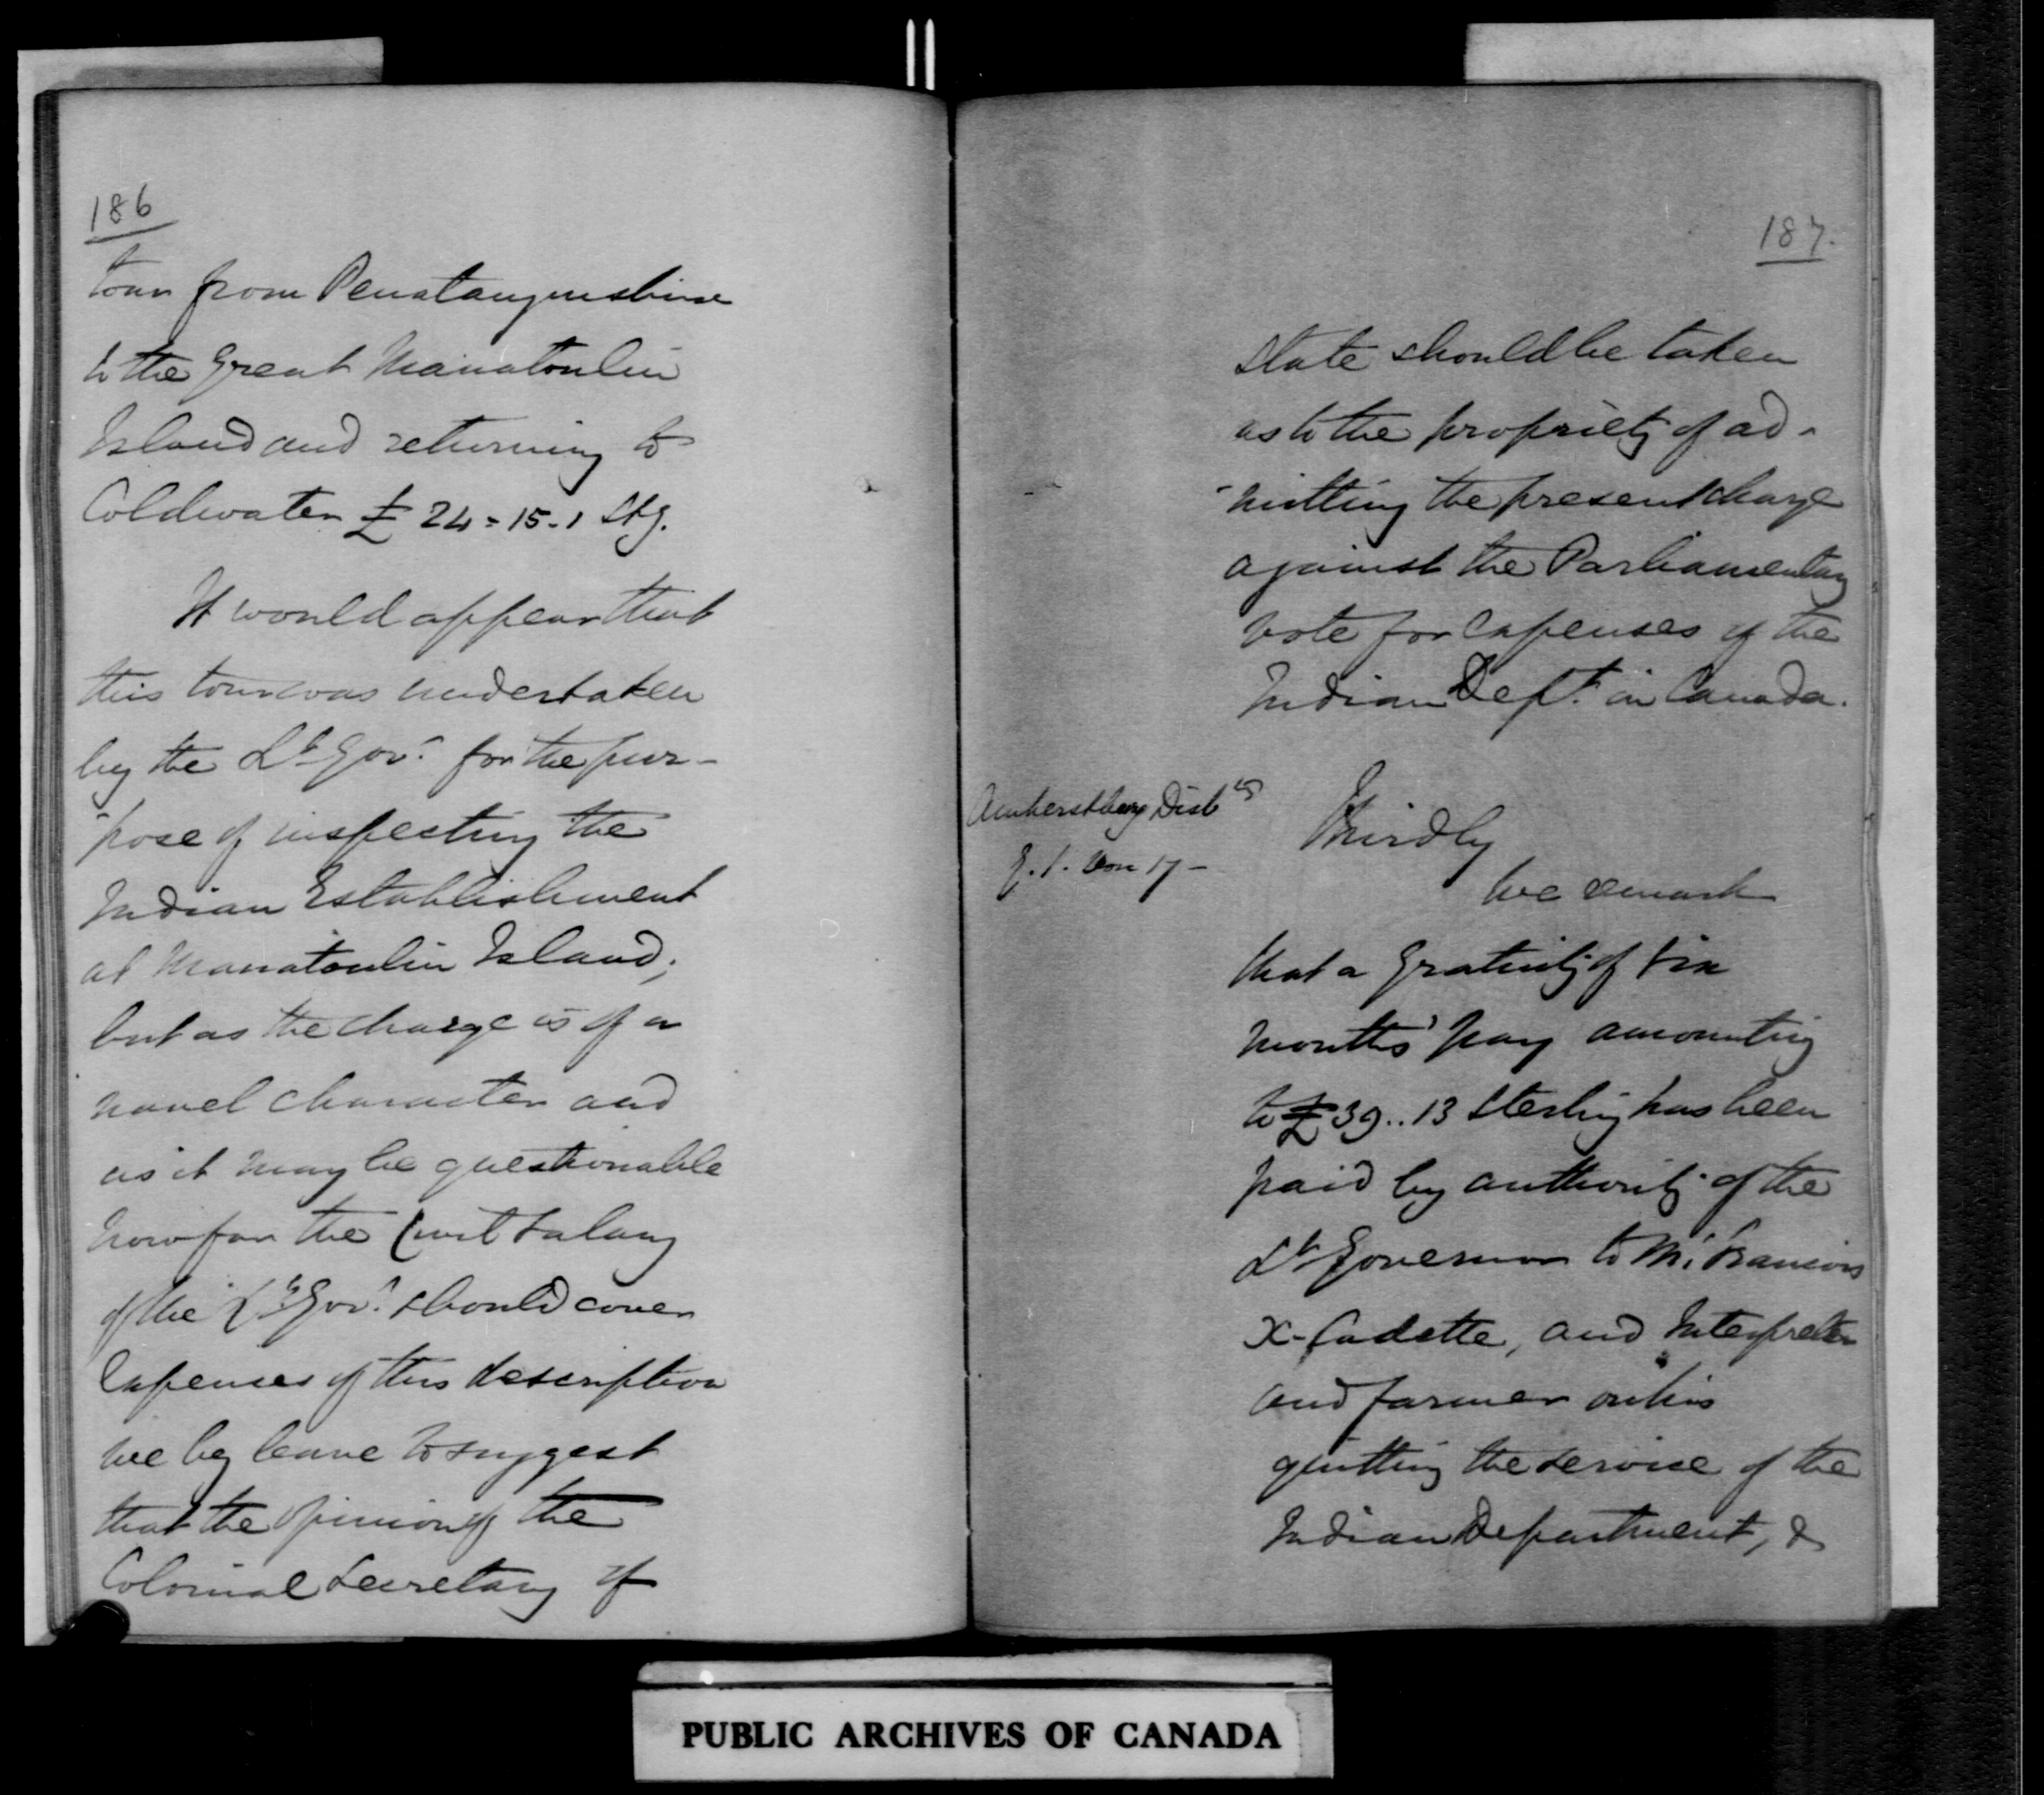 186
tour from Penatanguishine
to the Great Manatoulin
Island and returning to
Coldwater £ 24=15-1 Stg.
It would appear that
this tour was undertaken
by the Lt Govr. for the pur-
-pose of inspecting the
Indian Establishment
at Manatoulin Island;
but as the charge is of a
novel character and
as it may be questionable
how far the Civil Salary
of the Lt Govr. should cover
Expenses of this description
we beg leave to suggest
that the opinion of the
Colonial Secretary of
187.
State should be taken
as to the propriety of ad-
-mitting the present charge
against the Parliamentary
vote for Expenses of the
Indian Dept. in Canada.
Amherstburg Distts
E.1. Vou 17-
Thirdly
We remark
that a Gratuity of Six
months' pay amounting
to £39..13 Sterling has been
paid by authority of the
Lt Governor to Mr. Francois
X-Cadette, and Interpreter
and farmer on his
quitting the service of the
Indian Department, &
PUBLIC ARCHIVES OF CANADA